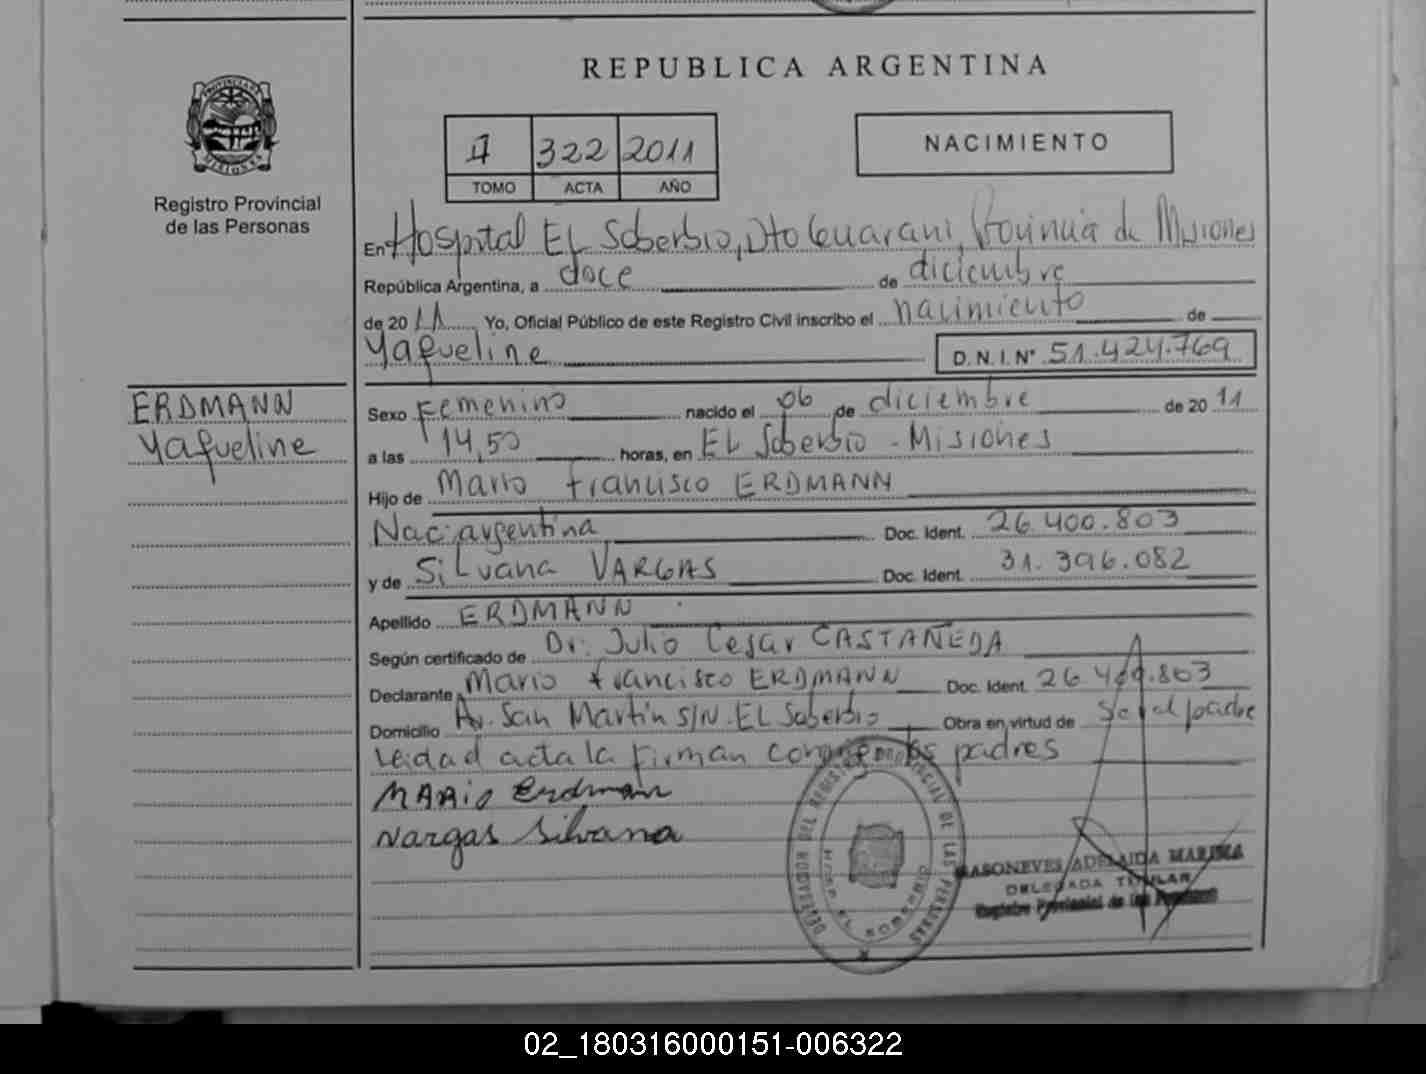 REPUBLICA ARGENTINA
PROVINCIA DE
MISIONES
Registro Provincial
de las Personas
322 2011
TOMO ACTA AÑO
NACIMIENTO
En Hospital El Soberbio, Dto Guarani, Provincia de Misiones
República Argentina, a doce de diciembre
de 2011 Yo, Oficial Público de este Registro Civil inscribo el nacimiento de
Yaqueline D.N.I.Nº 51.424.769
ERDMANN
Yaqueline
Sexo Femenino nacido el 06 de diciembre de 2011
a las 14,50 horas, en El Soberbio - Misiones
Hijo de Mario Francisco ERDMANN
Nac: argentina Doc. Ident. 26.400.803
y de Silvana VARGAS Doc. Ident. 31.396.082
Apellido ERDMANN
Según certificado de Dr: Julio Cesar CASTAÑEDA
Declarante Mario Francisco ERDMANN Doc. Ident. 26.400.803
Domicilio Av. San Martin S/N. EL Soberbio Obra en virtud de Ser el padre
Leida el acta la firman conmigo los padres
MARio Erdman
Vargas Silvana
DEL REGISTRO PROVINCIAL DE LAS PERSONAS
HOSP. EL SOBERBIO
ADELAIDA MARINA
DELEGADA TITULAR
Registro Provincial de las Personas
02_180316000151-006322